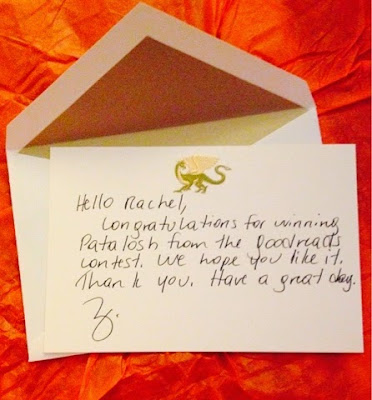 Hello Rachel,
Congratulations for winning
Patalosh from the Goodreads
contest. We hope you like it.
Thank you. Have a great day.
Z.